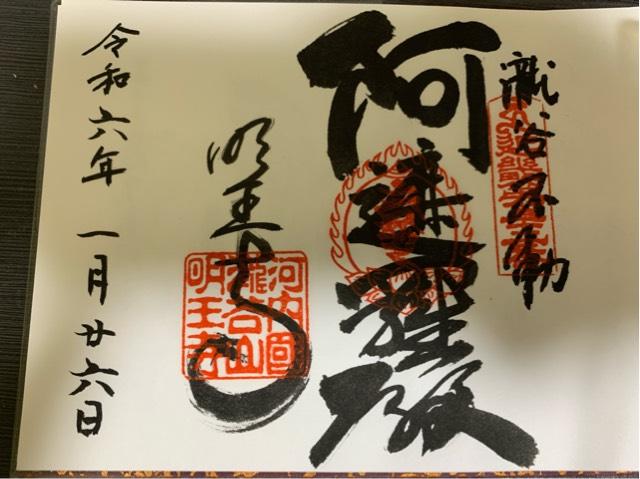 瀧谷不動
阿遮羅殿
明王寺
河内國
瀧谷山
明王寺
令和六年 一月廿六日